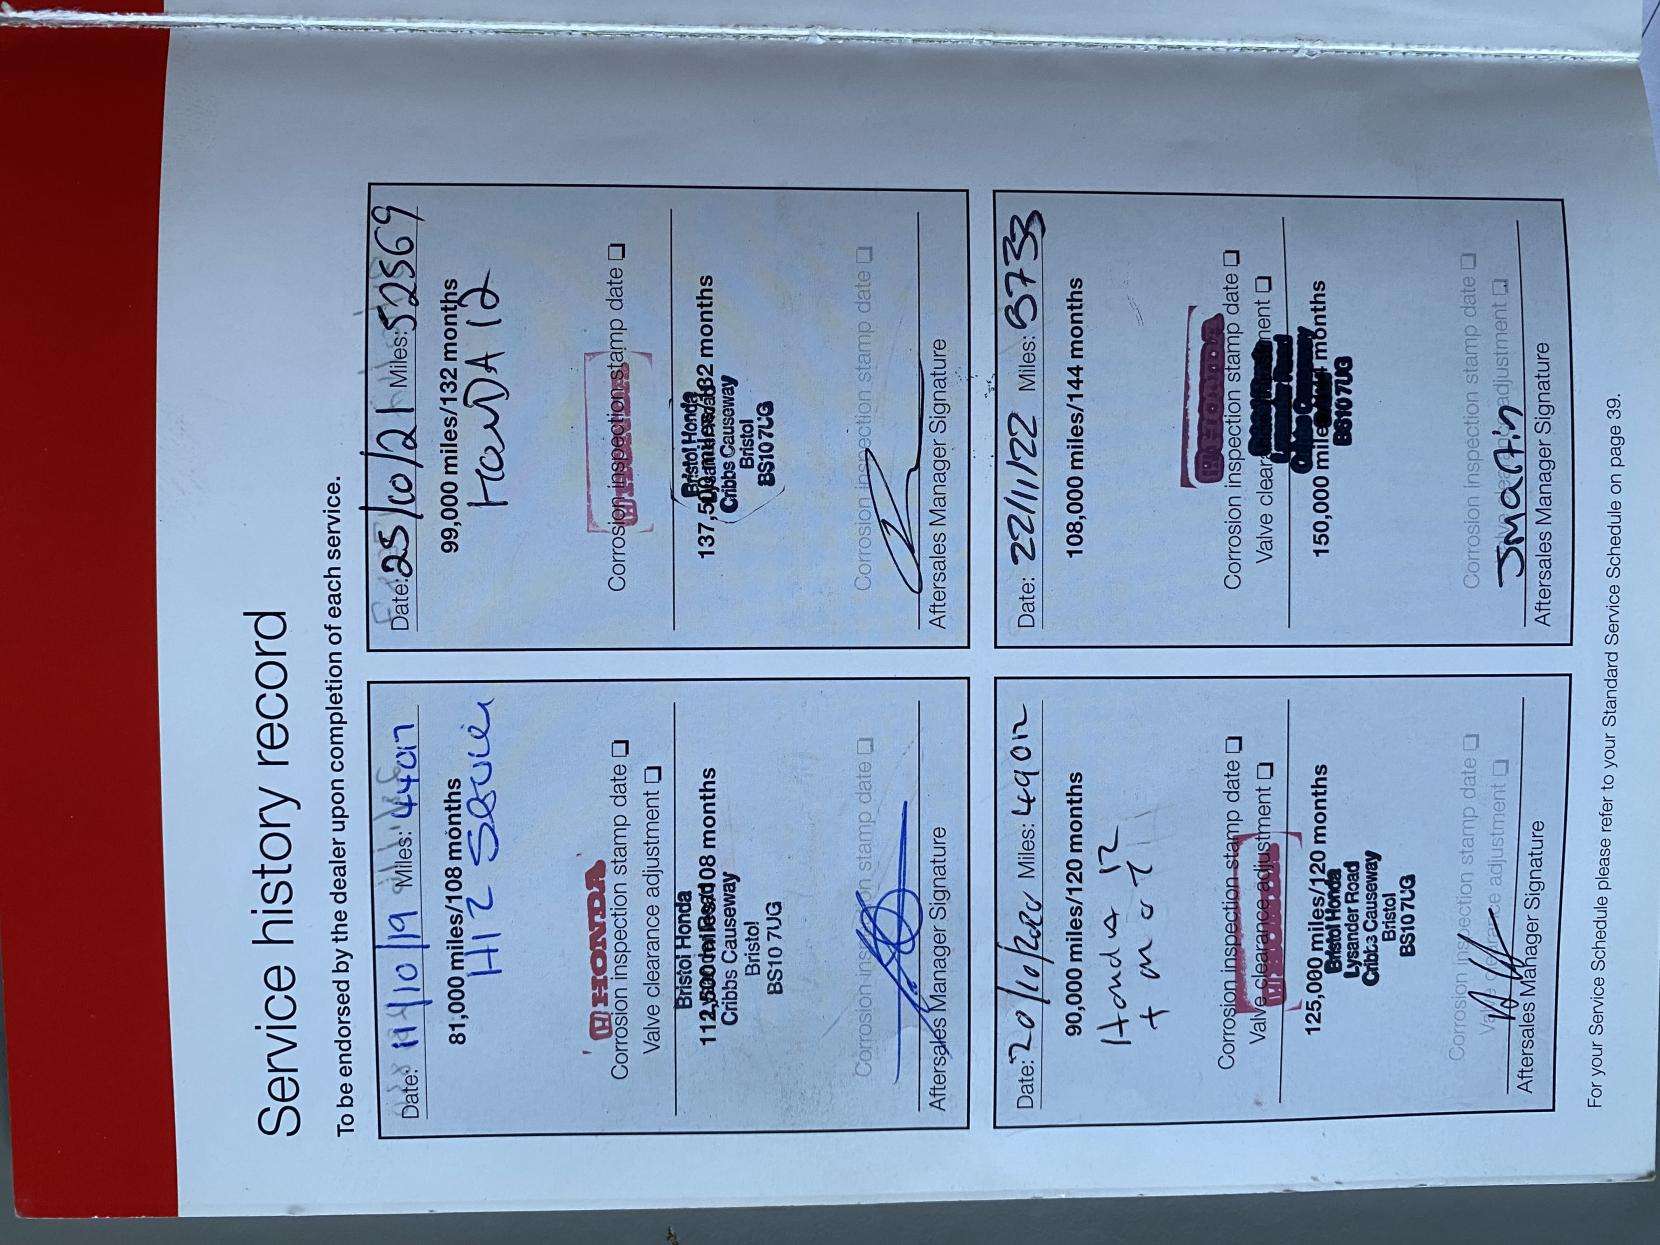 Service history record
To be endorsed by the dealer upon completion of each service.
Date: 11/10/19 Miles: 44017
81,000 miles/108 months
H12 Service
HONDA
Corrosion inspection stamp date
Valve clearance adjustment
Bristol Honda
112,500 miles/108 months
Cribbs Causeway
Bristol
BS10 7UG
Corrosion inspection stamp date
Aftersales Manager Signature
Date: 25/10/21 Miles: 52569
99,000 miles/132 months
HONDA 12
HONDA
Corrosion inspection stamp date
Bristol Honda
137,500 miles/132 months
Cribbs Causeway
Bristol
BS10 7UG
Corrosion inspection stamp date
Aftersales Manager Signature
Date: 20/10/2020 Miles: 49012
90,000 miles/120 months
Honda 12
+ mot
Corrosion inspection stamp date
Valve clearance adjustment
125,000 miles/120 months
Bristol Honda
Lysander Road
Cribbs Causeway
Bristol
BS10 7UG
Corrosion inspection stamp date
Valve clearance adjustment
Aftersales Manager Signature
Date: 22/11/22 Miles:
108,000 miles/144 months
HONDA
Corrosion inspection stamp date
Valve clearance adjustment
150,000 miles/144 months
BS10 7UG
Corrosion inspection stamp date
adjustment
J Martin
Aftersales Manager Signature
For your Service Schedule please refer to your Standard Service Schedule on page 39.